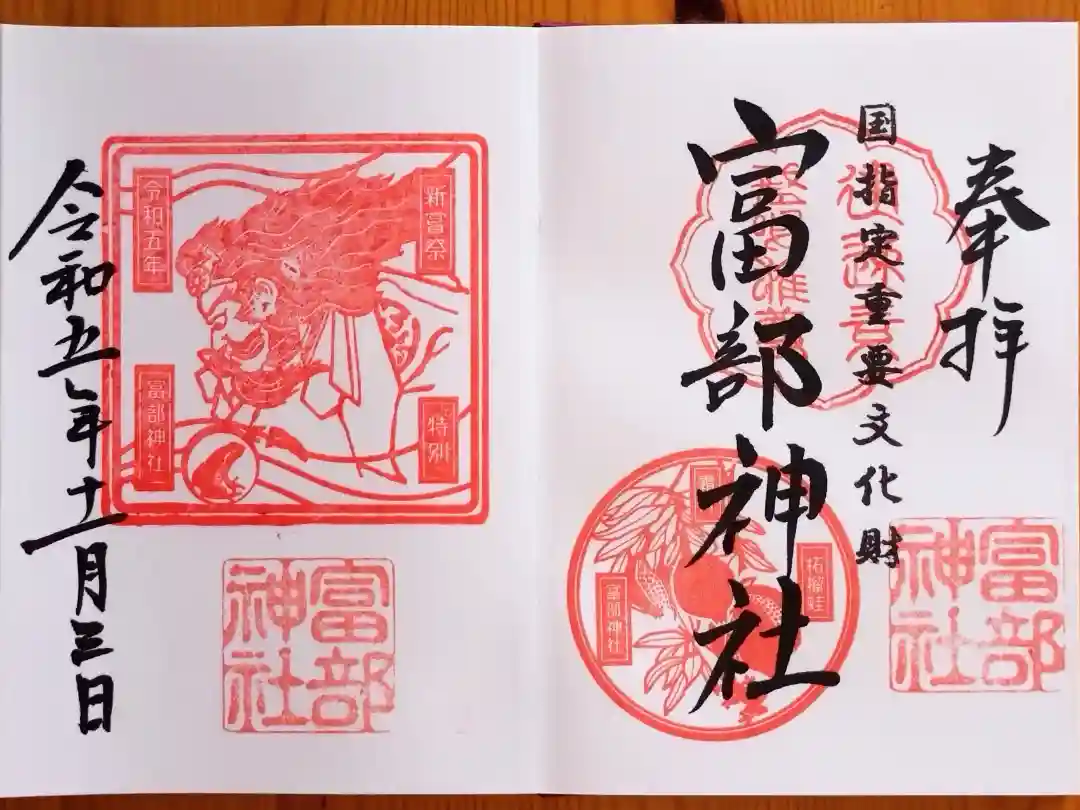 奉拝
国指定重要文化財
富部神社
富部神社
柘榴蛙
富部神社
新嘗祭
特別
令和五年
富部神社
令和五年十一月三日
富部神社